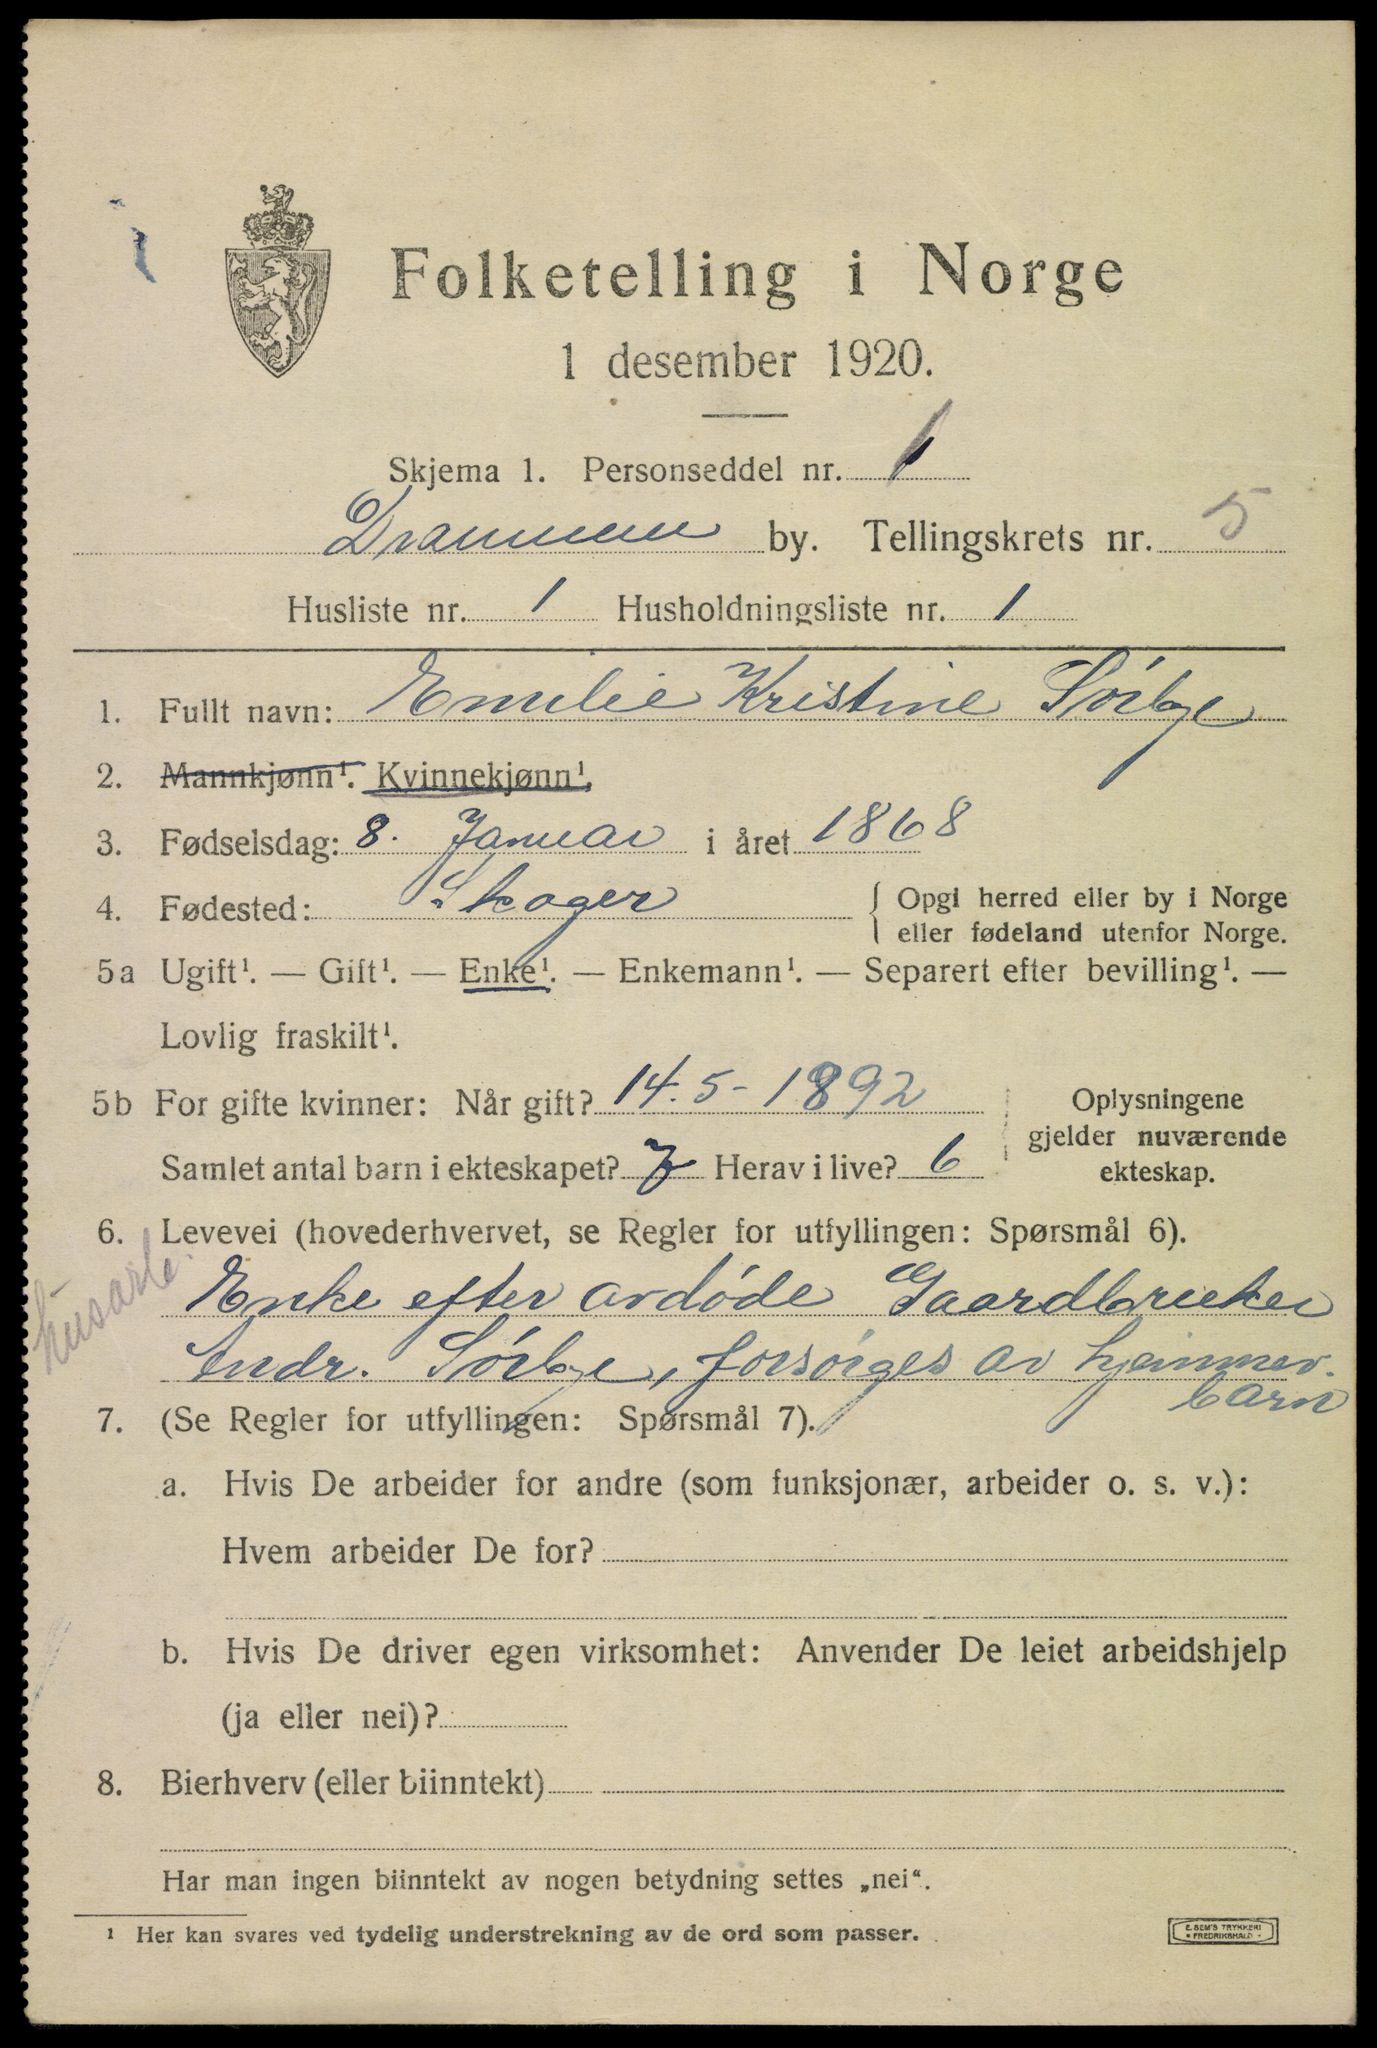 Folketelling i Norge
1 desember 1920.
Skjema 1. Personseddel nr. 1
Drammen by. Tellingskrets nr. 5
Husliste nr. 1 Husholdningsliste nr. 1
1. Fullt navn: Emilie Kristine Sörbye
2. Mannkjønn¹. Kvinnekjønn¹.
3. Fødselsdag: 8. Januar i året 1868
4. Fødested: Skoger { Opgi herred eller by i Norge
eller fødeland utenfor Norge.
5a Ugift¹. — Gift¹. — Enke¹. — Enkemann¹. — Separert efter bevilling¹. —
Lovlig fraskilt¹.
5b For gifte kvinner: Når gift? 14.5-1892
Samlet antal barn i ekteskapet? 7 Herav i live? 6
Oplysningene
gjelder nuværende
ekteskap.
6. Levevei (hovederhvervet, se Regler for utfyllingen: Spørsmål 6).
husarb.
Enke efter avdöde Gaardbruker
Andr. Sörbye, forsörges av hjemmev.
barn
7. (Se Regler for utfyllingen: Spørsmål 7).
a. Hvis De arbeider for andre (som funksjonær, arbeider o. s. v.):
Hvem arbeider De for?
b. Hvis De driver egen virksomhet: Anvender De leiet arbeidshjelp
(ja eller nei)?
8. Bierhverv (eller biinntekt)
Har man ingen biinntekt av nogen betydning settes „nei“.
¹ Her kan svares ved tydelig understrekning av de ord som passer.
E. SEM'S TRYKKERI
FREDRIKSHALD